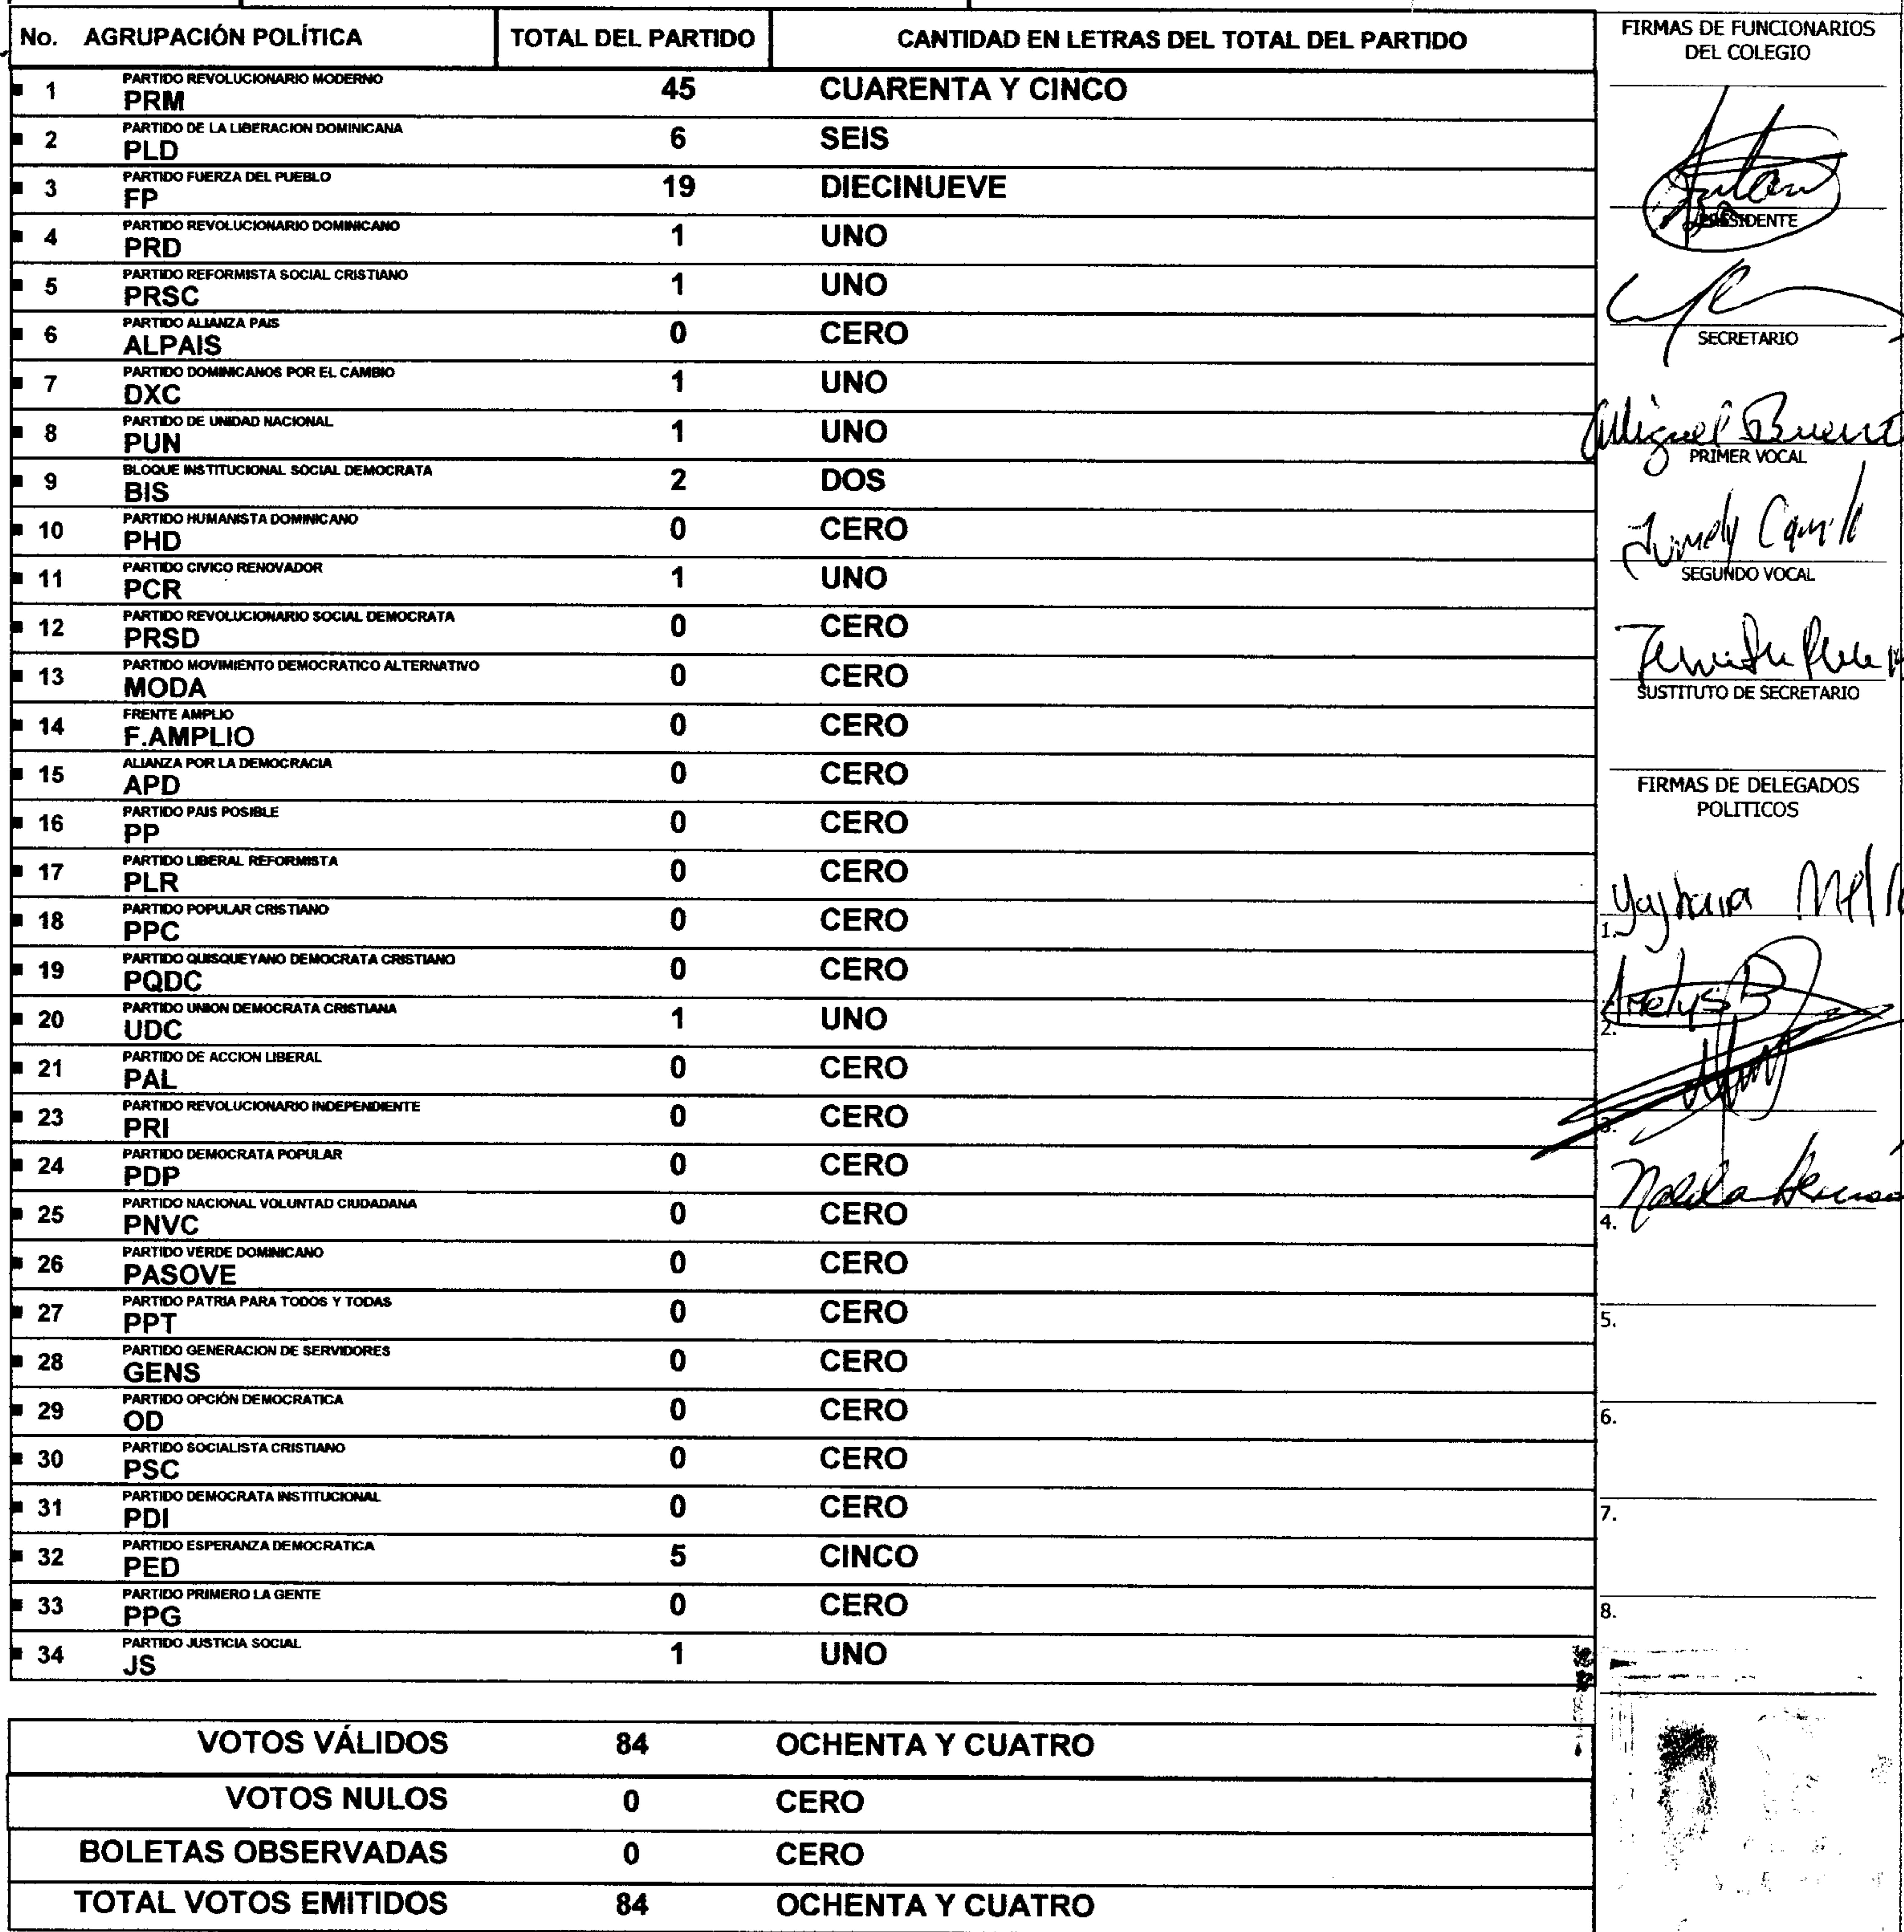 No. AGRUPACIÓN POLÍTICA TOTAL DEL PARTIDO CANTIDAD EN LETRAS DEL TOTAL DEL PARTIDO
PARTIDO REVOLUCIONARIO MODERNO
1 PRM 45 CUARENTA Y CINCO
PARTIDO DE LA LIBERACION DOMINICANA
2 PLD 6 SEIS
PARTIDO FUERZA DEL PUEBLO
3 FP 19 DIECINUEVE
PARTIDO REVOLUCIONARIO DOMINICANO
4 PRD 1 UNO
PARTIDO REFORMISTA SOCIAL CRISTIANO
5 PRSC 1 UNO
PARTIDO ALIANZA PAIS
6 ALPAIS 0 CERO
PARTIDO DOMINICANOS POR EL CAMBIO
7 DXC 1 UNO
PARTIDO DE UNIDAD NACIONAL
8 PUN 1 UNO
BLOQUE INSTITUCIONAL SOCIAL DEMOCRATA
9 BIS 2 DOS
PARTIDO HUMANISTA DOMINICANO
10 PHD 0 CERO
PARTIDO CIVICO RENOVADOR
11 PCR 1 UNO
PARTIDO REVOLUCIONARIO SOCIAL DEMOCRATA
12 PRSD 0 CERO
PARTIDO MOVIMIENTO DEMOCRATICO ALTERNATIVO
13 MODA 0 CERO
FRENTE AMPLIO
14 F.AMPLIO 0 CERO
ALIANZA POR LA DEMOCRACIA
15 APD 0 CERO
PARTIDO PAIS POSIBLE
16 PP 0 CERO
PARTIDO LIBERAL REFORMISTA
17 PLR 0 CERO
PARTIDO POPULAR CRISTIANO
18 PPC 0 CERO
PARTIDO QUISQUEYANO DEMOCRATA CRISTIANO
19 PQDC 0 CERO
PARTIDO UNION DEMOCRATA CRISTIANA
20 UDC 1 UNO
PARTIDO DE ACCION LIBERAL
21 PAL 0 CERO
PARTIDO REVOLUCIONARIO INDEPENDIENTE
23 PRI 0 CERO
PARTIDO DEMOCRATA POPULAR
24 PDP 0 CERO
PARTIDO NACIONAL VOLUNTAD CIUDADANA
25 PNVC 0 CERO
PARTIDO VERDE DOMINICANO
26 PASOVE 0 CERO
PARTIDO PATRIA PARA TODOS Y TODAS
27 PPT 0 CERO
PARTIDO GENERACION DE SERVIDORES
28 GENS 0 CERO
PARTIDO OPCIÓN DEMOCRATICA
29 OD 0 CERO
PARTIDO SOCIALISTA CRISTIANO
30 PSC 0 CERO
PARTIDO DEMOCRATA INSTITUCIONAL
31 PDI 0 CERO
PARTIDO ESPERANZA DEMOCRATICA
32 PED 5 CINCO
PARTIDO PRIMERO LA GENTE
33 PPG 0 CERO
PARTIDO JUSTICIA SOCIAL
34 JS 1 UNO
VOTOS VÁLIDOS 84 OCHENTA Y CUATRO
VOTOS NULOS 0 CERO
BOLETAS OBSERVADAS 0 CERO
TOTAL VOTOS EMITIDOS 84 OCHENTA Y CUATRO
FIRMAS DE FUNCIONARIOS
DEL COLEGIO
PRESIDENTE
SECRETARIO
Miguel
PRIMER VOCAL
SEGUNDO VOCAL
SUSTITUTO DE SECRETARIO
FIRMAS DE DELEGADOS
POLITICOS
1.
2.
3.
4.
5.
6.
7.
8.